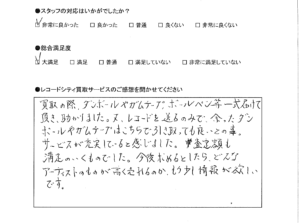 ●スタッフの対応はいかがでしたか？
☑非常に良かった □良かった □普通 □良くない □非常に良くない
●総合満足度
☑大満足 □満足 □普通 □満足していない □非常に満足していない
●レコードシティ買取サービスのご感想を聞かせてください
買取の際、ダンボールやガムテープ、ボールペン等一式届けて
頂き、助かりました。又、レコードを送るのみで、余ったダン
ボールやガムテープはこちらで引き取っても良いとの事。
サービスが充実していると感じました。査定額も
満足のいくものでした。今後求めるとしたら、どんな
アーティストのものが高く売れるのか、もう少し情報が欲しい
です。